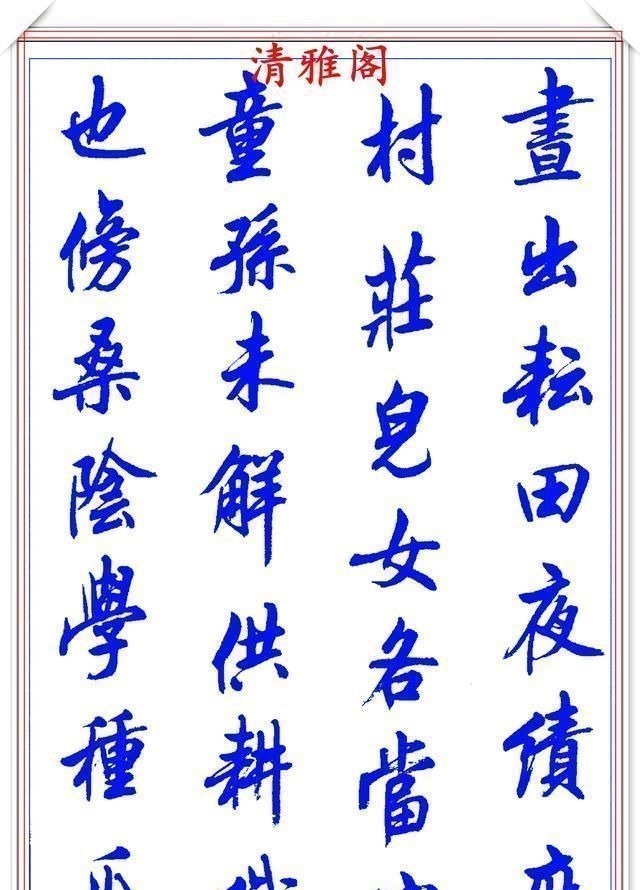 清雅阁
晝出耘田夜績
村莊兒女各當
童孫未解供耕
也傍桑陰學種